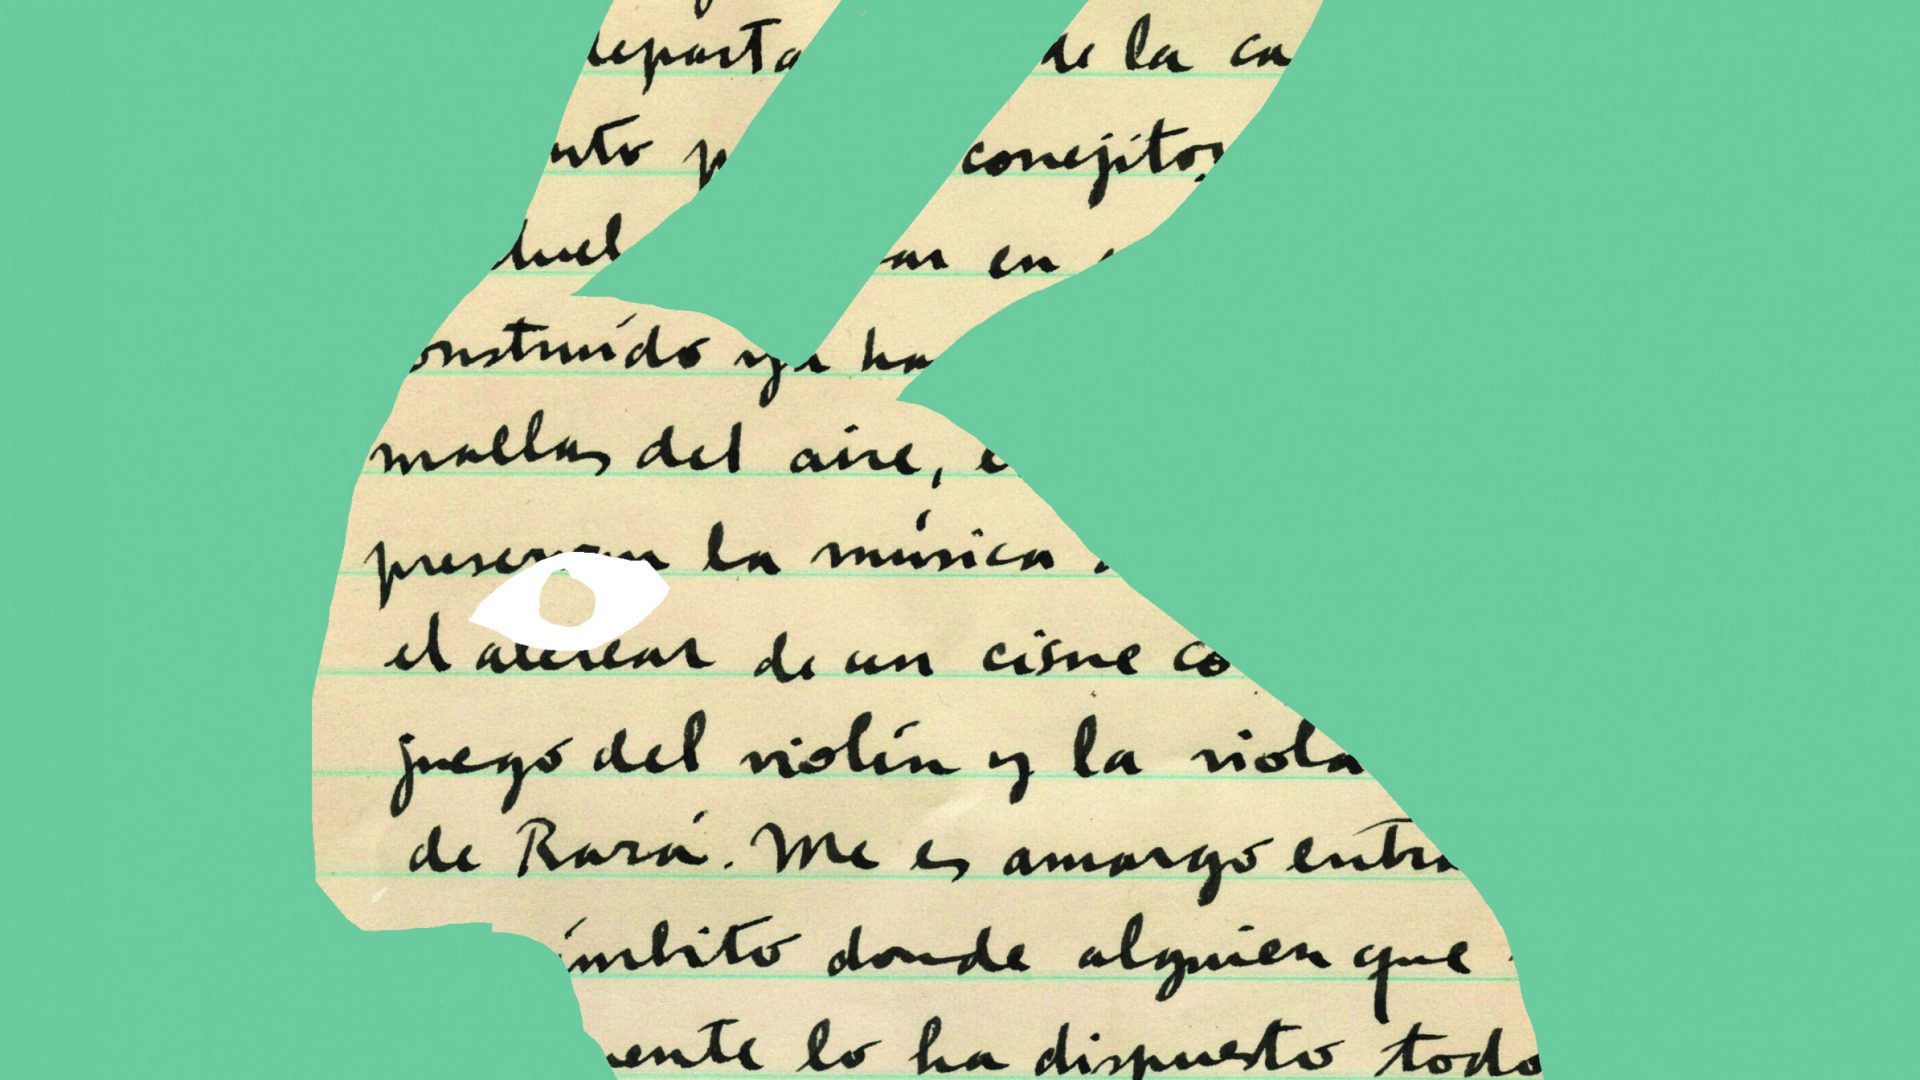 departa de la ca
nto p conejitos,
duel ar en
onstruído ya ha
mallas del aire, e
preservan la música
el aletear de un cisne co
juego del violín y la viola
de Rará. Me es amargo entra
ámbito donde alguien que
mente lo ha dispuesto todo